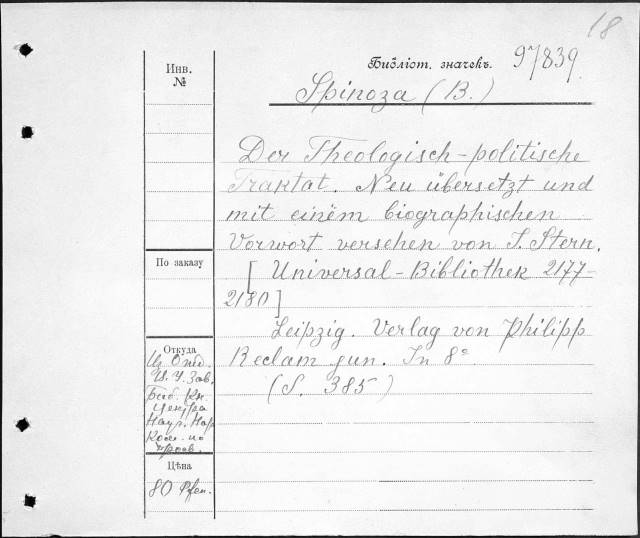 18
Библіот. значекъ. 97839
Инв.
№
Spinoza (B.)
Der Theologisch-politische
Traktat. Neu übersetzt und
mit einem biographischen
Vorwort versehen von J. Stern.
По заказу
[Universal-Bibliothek 2177-
2180]
Leipzig. Verlag von Philipp
Reclam jun. In 8°
(S. 385)
Откуда
Из Отд.
Зав.
Биб. Кн.
Центра
Ком. по
Цѣна
80 Pfen.